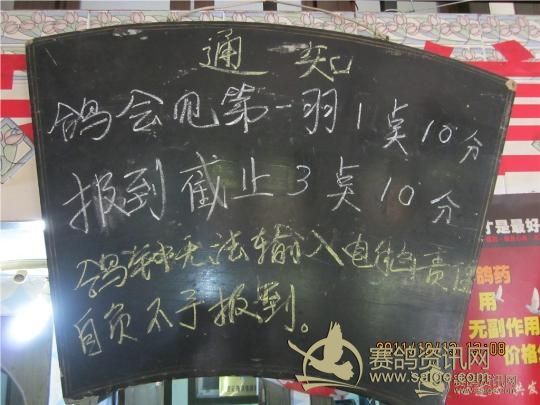 通知
鸽会见第一羽1点10分
报到截止3点10分
鸽钟无法输入电脑责任
自负不予报到。
才是最好
鸽药
用
无副作用
价格
共发
2011/10/13 13:08
赛鸽资讯网
www.saige.com